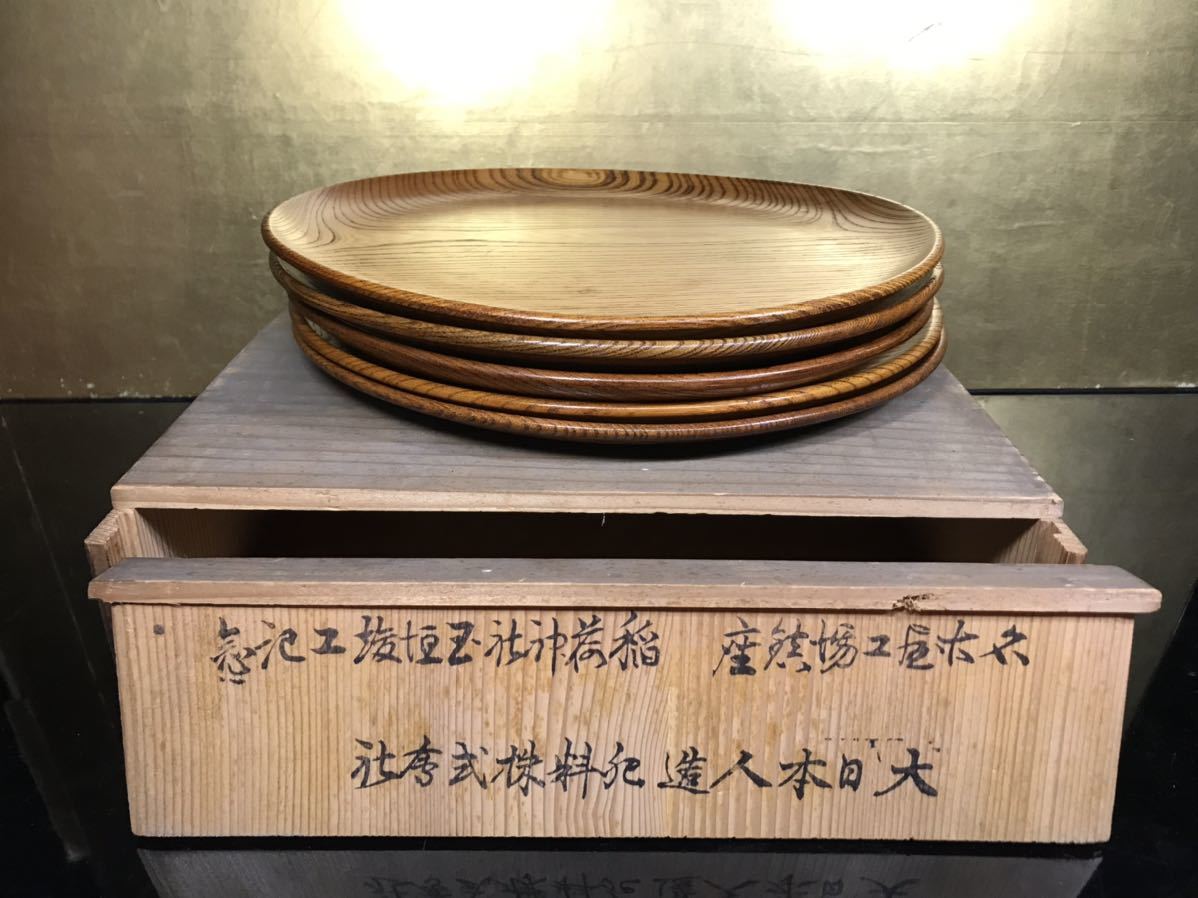 名古屋工場鎮座 稲荷神社玉垣竣工記念
大日本人造肥料株式会社